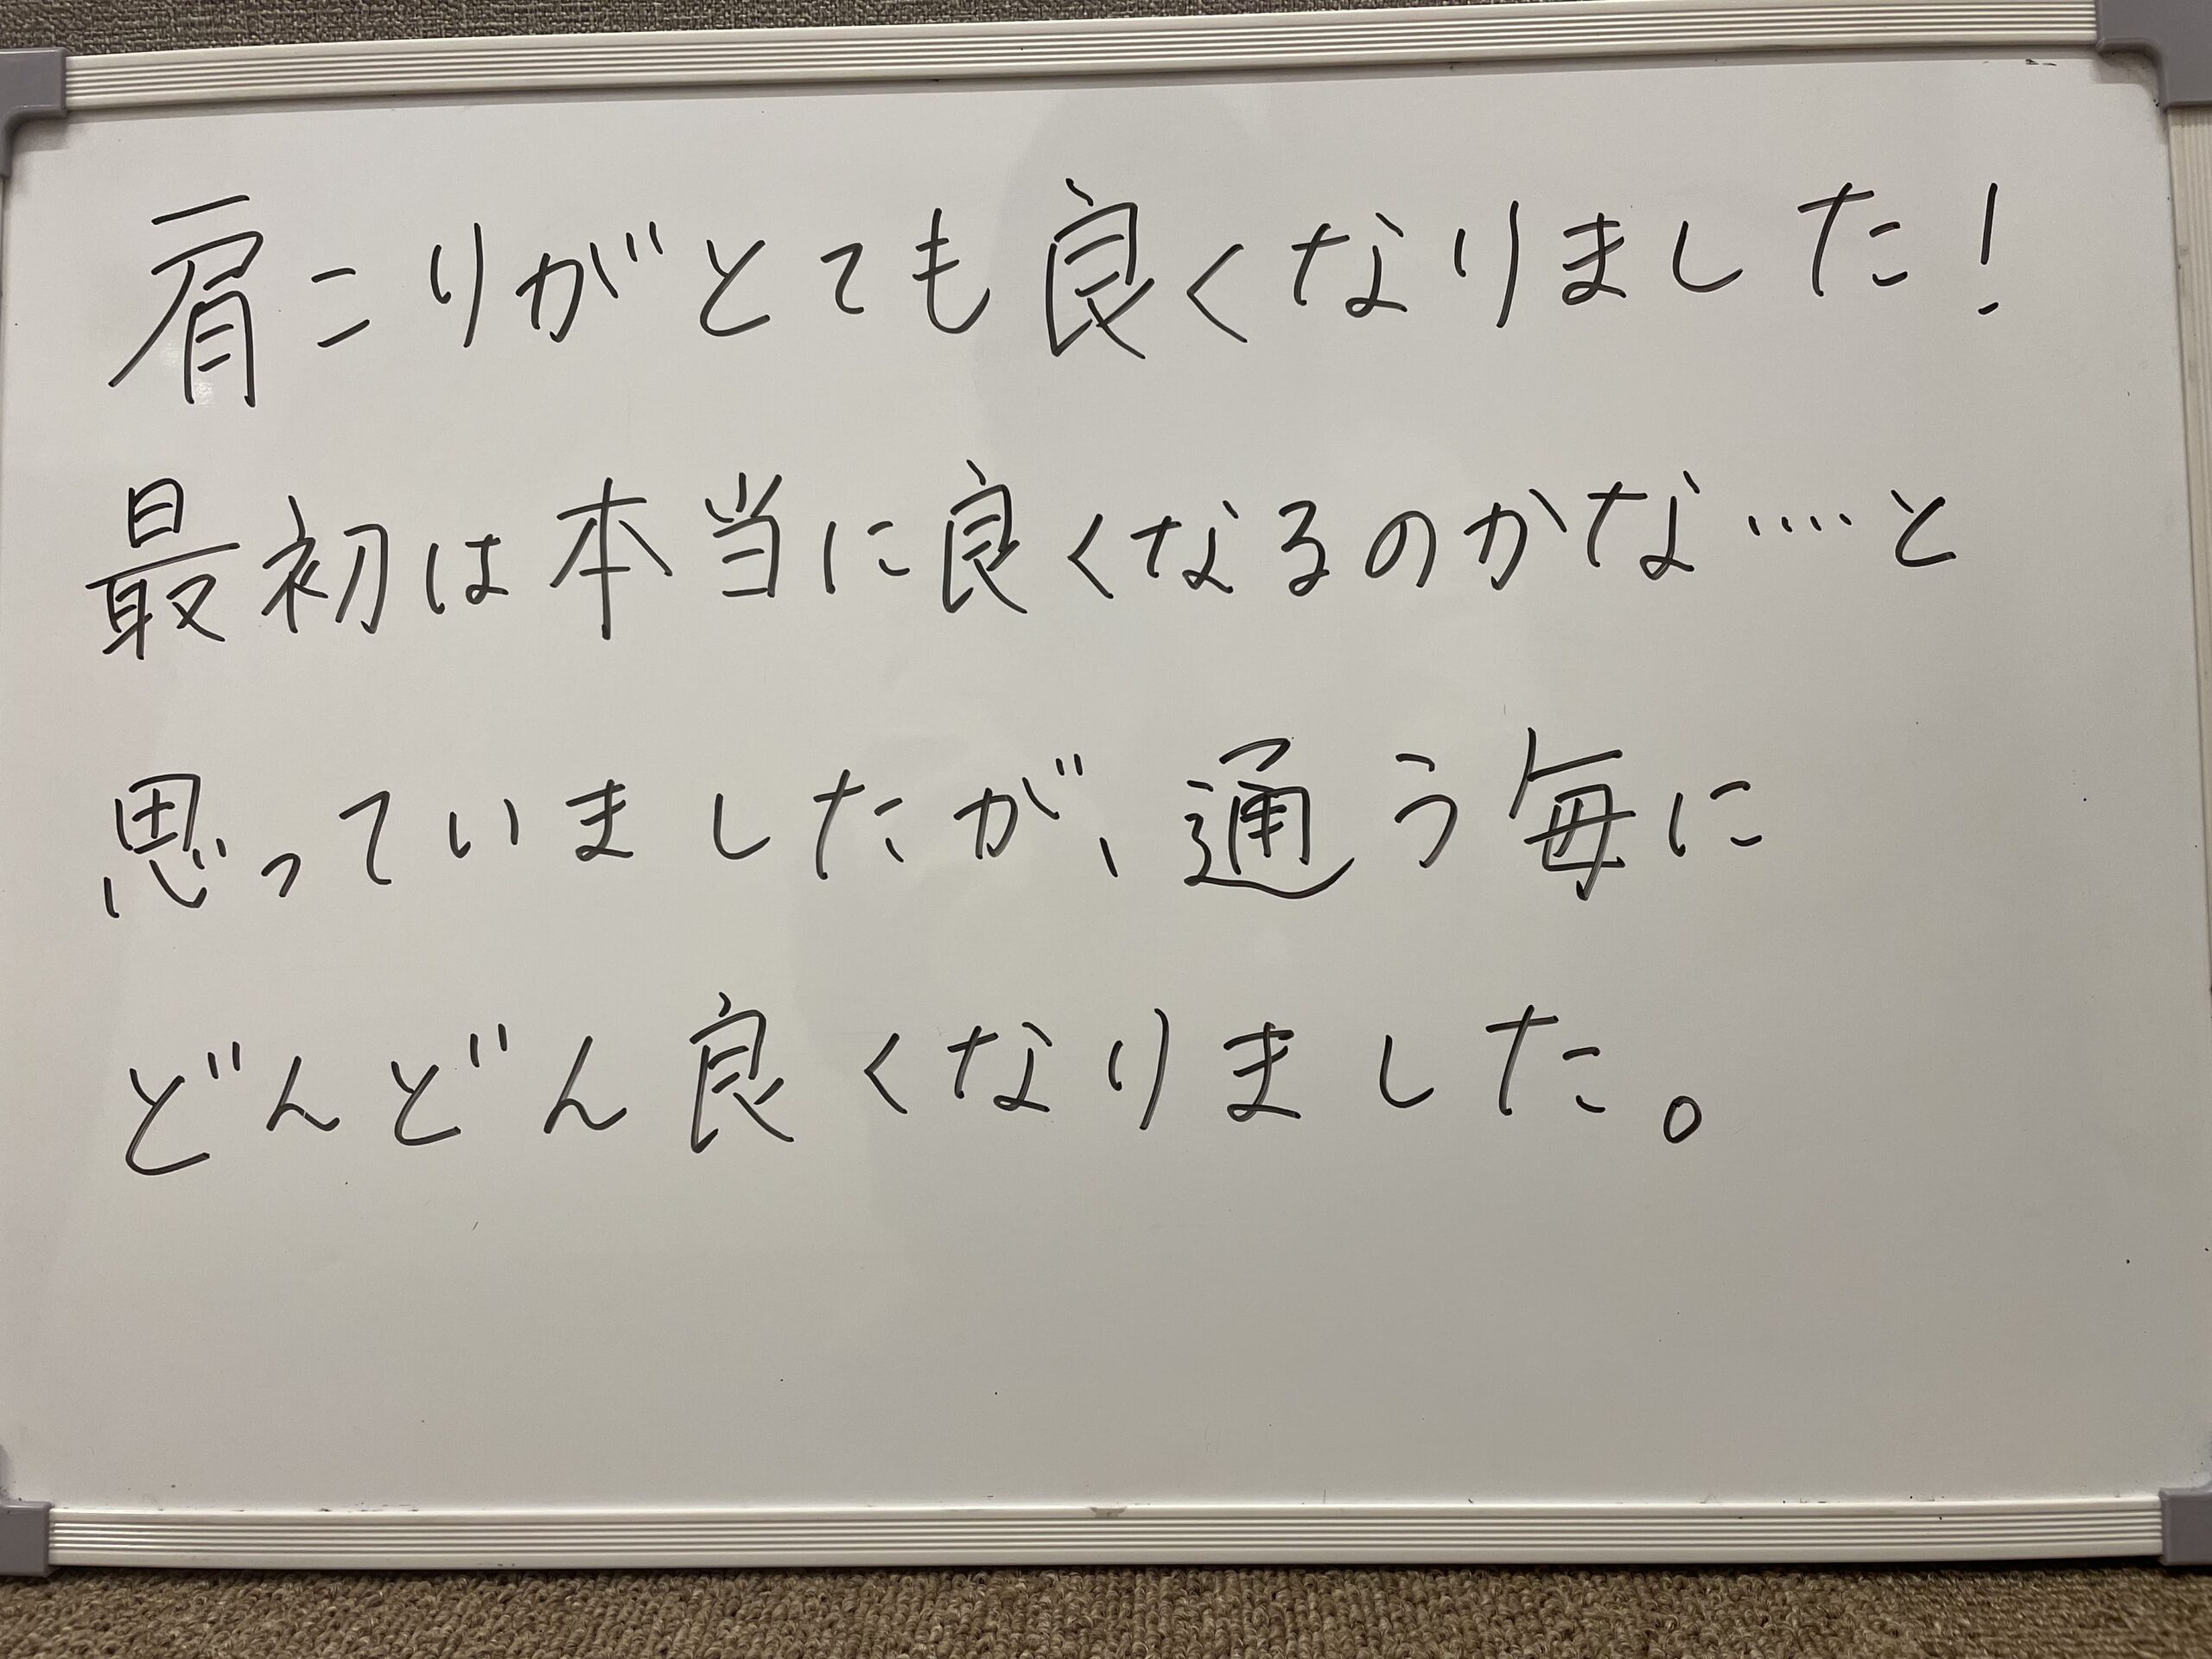 肩こりがとても良くなりました!
最初は本当に良くなるのかな….と
思っていましたが、通う毎に
どんどん良くなりました。